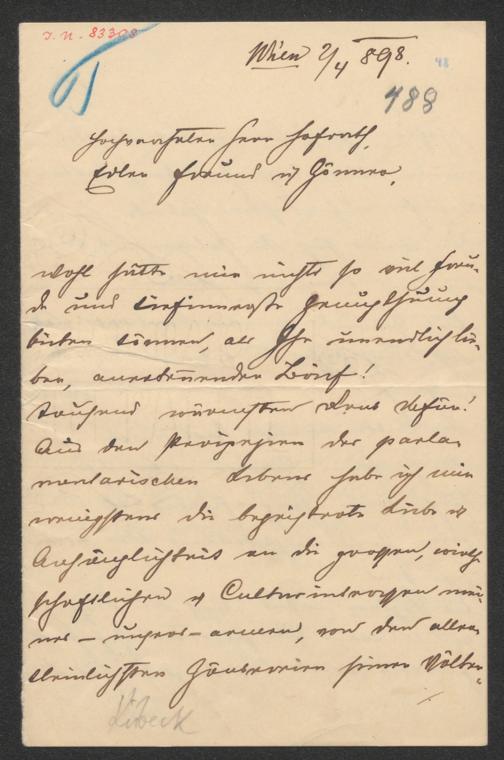 I. N. 83308
Wien 2/4 898.
48
488
Hochverehrter Herr Hofrath,
Edler Freund u Gönner,
wohl hätte mir nichts so viel Freu-
de und tiefinnerste Genugthuung
bieten können, als Ihr unendlich lie-
ber, anerkennender Brief!
Tausend wärmsten Dank dafür!
Aus den Peripetien des parla-
mentarischen Lebens habe ich mir
wenigstens die begeisterte Liebe u
Anhänglichkeit an die großen, wirth-
schaftlichen u Culturinteressen mei-
nes – unseres – armen, von den aller-
kleinlichsten Zänkereien seiner Völker-
Kübeck